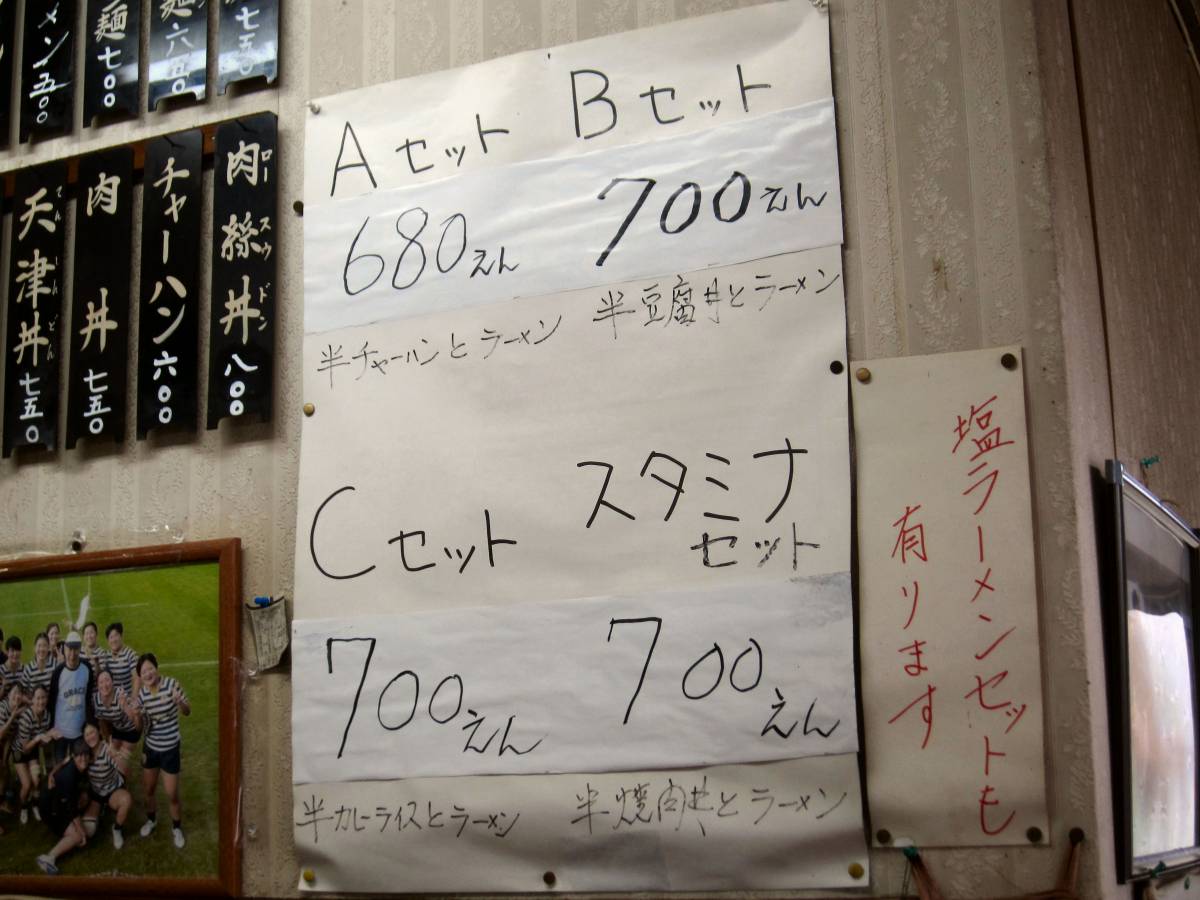 メン 五〇〇
麺 七〇〇
麺 六五〇
七五〇
天津丼 七五〇
てんしんどん
肉丼 七五〇
チャーハン 六〇〇
肉絲丼 八〇〇
ロースウドン
Aセット
680えん
半チャーハンとラーメン
Bセット
700えん
半豆腐丼とラーメン
Cセット
700えん
半カレーライスとラーメン
スタミナ
セット
700えん
半焼肉丼とラーメン
塩ラーメンセットも
有リます